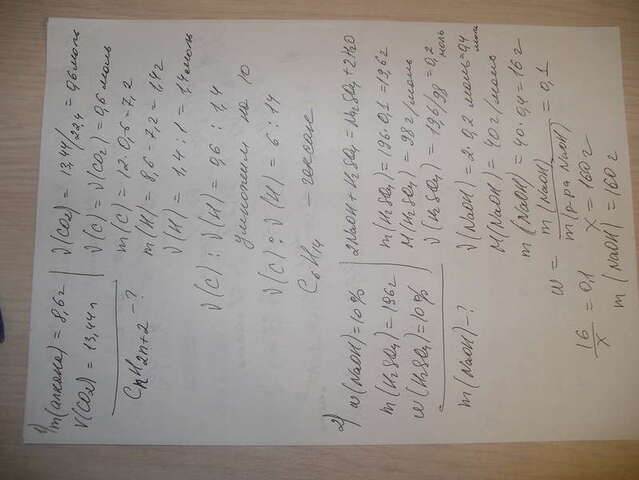 1) m(алкана) = 8,6 г
V(CO2) = 13,44 л
CnH2n+2 - ?
ν(CO2) = 13,44/22,4 = 0,6 моль
ν(C) = ν(CO2) = 0,6 моль
m(C) = 12·0,6 = 7,2
m(H) = 8,6 - 7,2 = 1,4 г
ν(H) = 1,4 : 1 = 1,4 моль
ν(C) : ν(H) = 0,6 : 1,4
умножаем на 10
ν(C) : ν(H) = 6 : 14
C6H14 - гексан
2) w(NaOH) = 10%
m(H2SO4) = 196 г
w(H2SO4) = 10%
m(NaOH) - ?
2NaOH + H2SO4 = Na2SO4 + 2H2O
m(H2SO4) = 196·0,1 = 19,6 г
M(H2SO4) = 98 г/моль
ν(H2SO4) = 19,6/98 = 0,2 моль
ν(NaOH) = 2·0,2 моль = 0,4 моль
M(NaOH) = 40 г/моль
m(NaOH) = 40·0,4 = 16 г
w = m(NaOH) / m(р-ра NaOH) = 0,1
16/x = 0,1 x = 160 г
m(NaOH) = 160 г